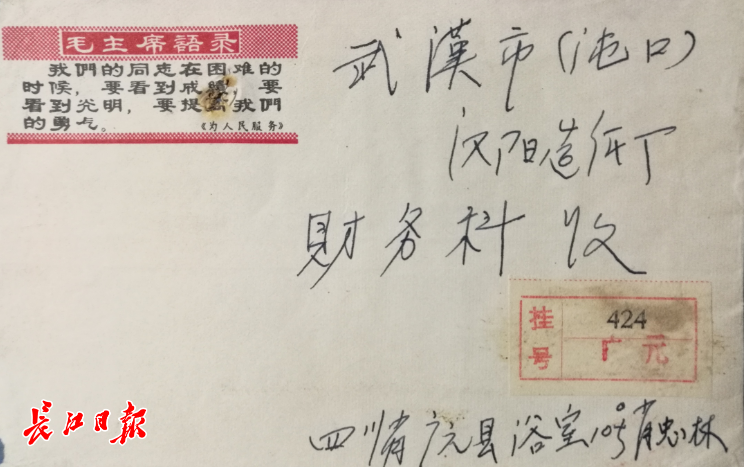 毛主席語录
我們的同志在困难的
时候，要看到成績，要
看到光明，要提高我們
的勇气。
《为人民服务》
武漢市(沌口)
汉阳造纸厂
财务科 收
挂号
424
广元
四川省广元县浴室10号肖忠林
长江日报